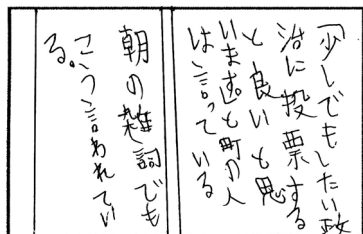 「少しでもしたい政
治に投票する
と良いと思
います」と町の人
は言っている
朝の雑詞でも
こう言われてい
る。